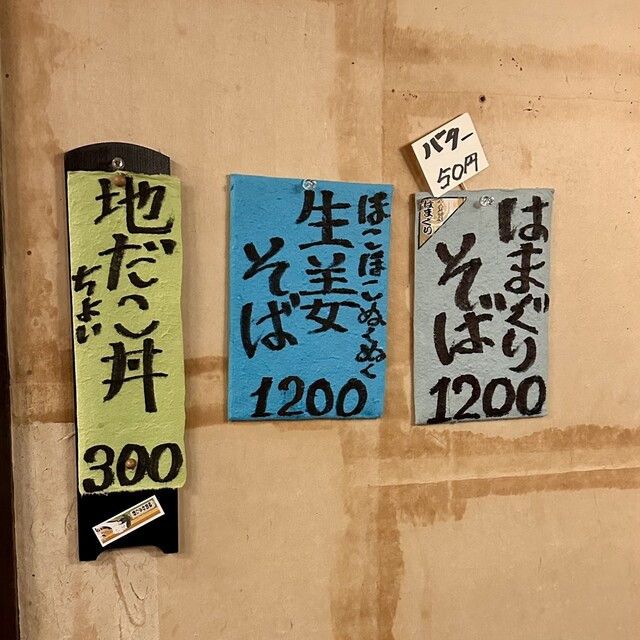 バター
50円
はまぐり
そば
1200
はまぐり
ほこほこぬくぬく
生姜
そば
1200
地だこ丼
ちょい
300